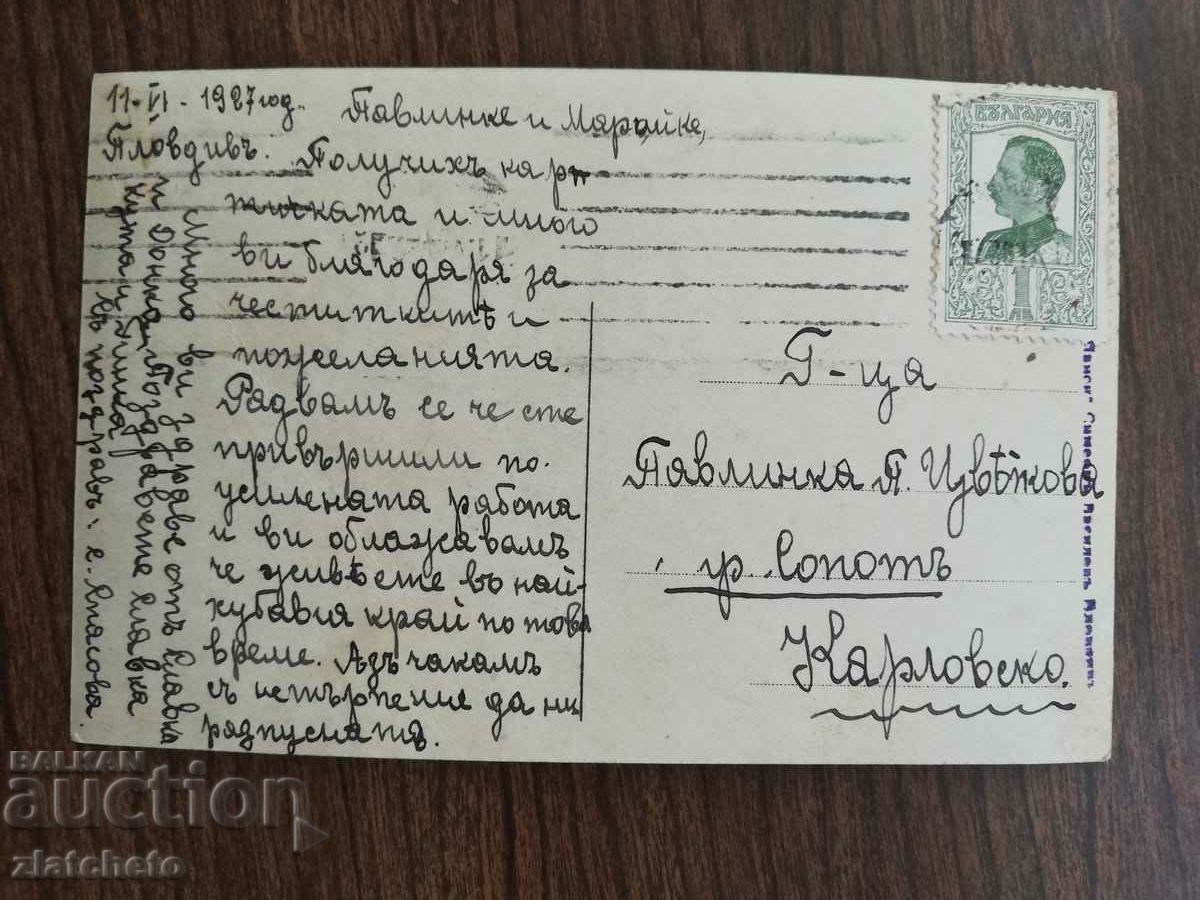 11-VI-1927год.
Пловдивъ.
Павлинке и Марийке,
Получихъ кар-
тичката и много
ви благодаря за
честиткитѣ и
пожеланията.
Радвамъ се че сте
привършили по-
усилената работа
и ви облажавамъ
че живѣете въ най-
хубавия край по това
време. Азъ чакамъ
съ нетърпение да ни
разпуснатъ.
Много ви здраве отъ Славка
и Донка. Поздравете Славка
Кута и
съ поздравъ: е. Япасова.
БЪЛГАРИЯ
1
Г-ца
Павлинка П. Цвѣткова
гр. Сопотъ
Карловско.
BALKAN
auction
zlatcheto